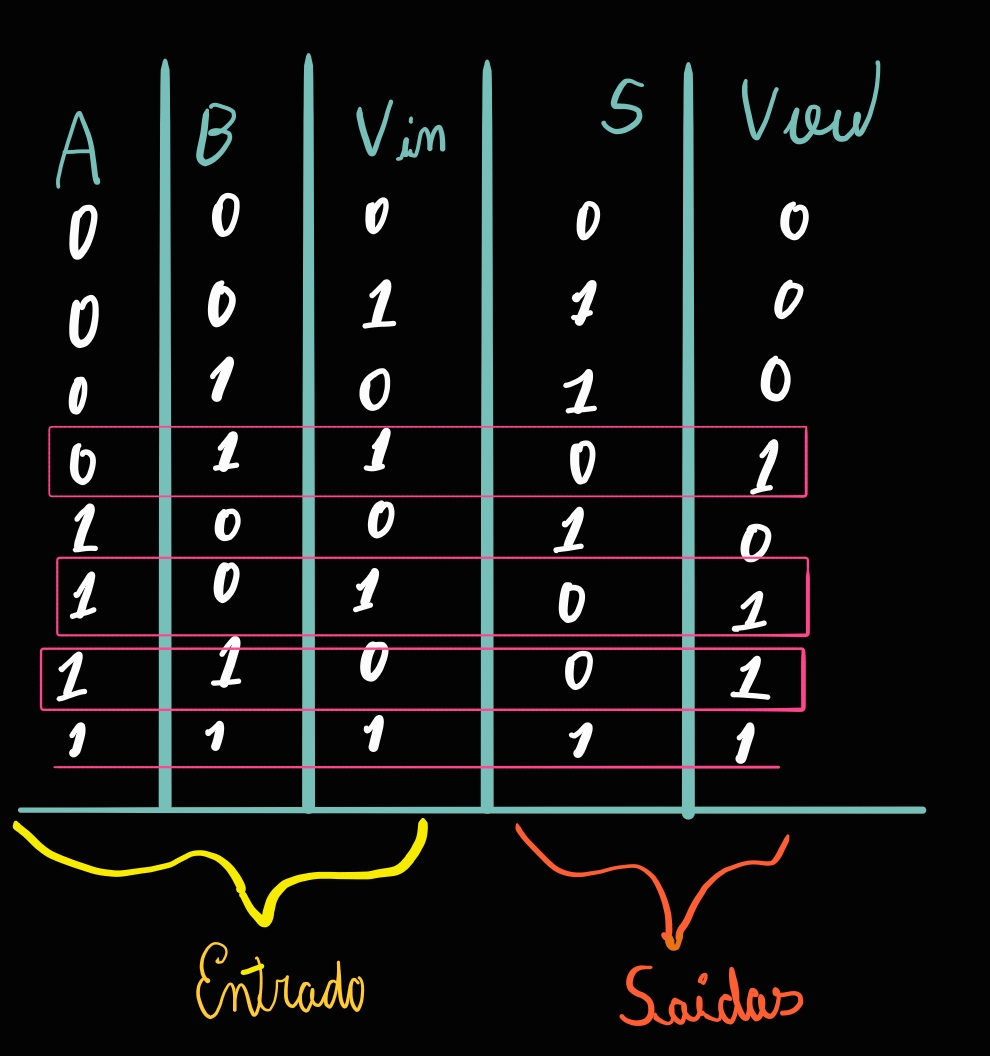 A B Vin S Vout
0 0 0 0 0
0 0 1 1 0
0 1 0 1 0
0 1 1 0 1
1 0 0 1 0
1 0 1 0 1
1 1 0 0 1
1 1 1 1 1
Entrada Saidas